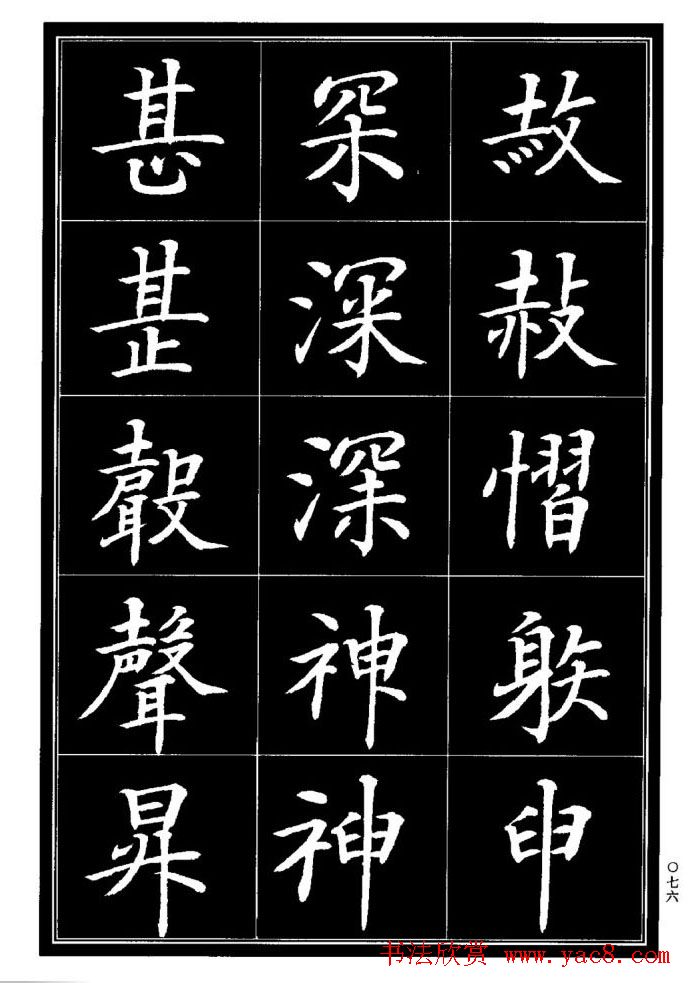 赦赦慴䠶申
罙深深神神
甚甚聲聲昇
〇七六
书法欣赏 www.yac8.com